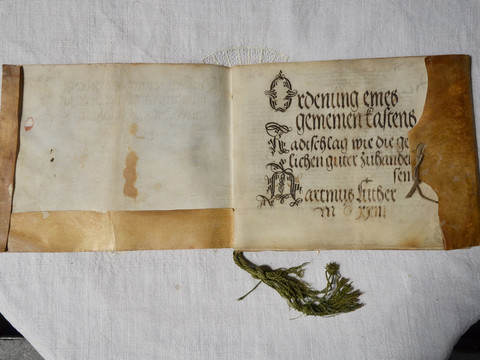 Ordenung eines
gemeinen kastens
Radschlag wie die ge
lichen guter zuhandel
sen
Martinus Luther
M D XXIII